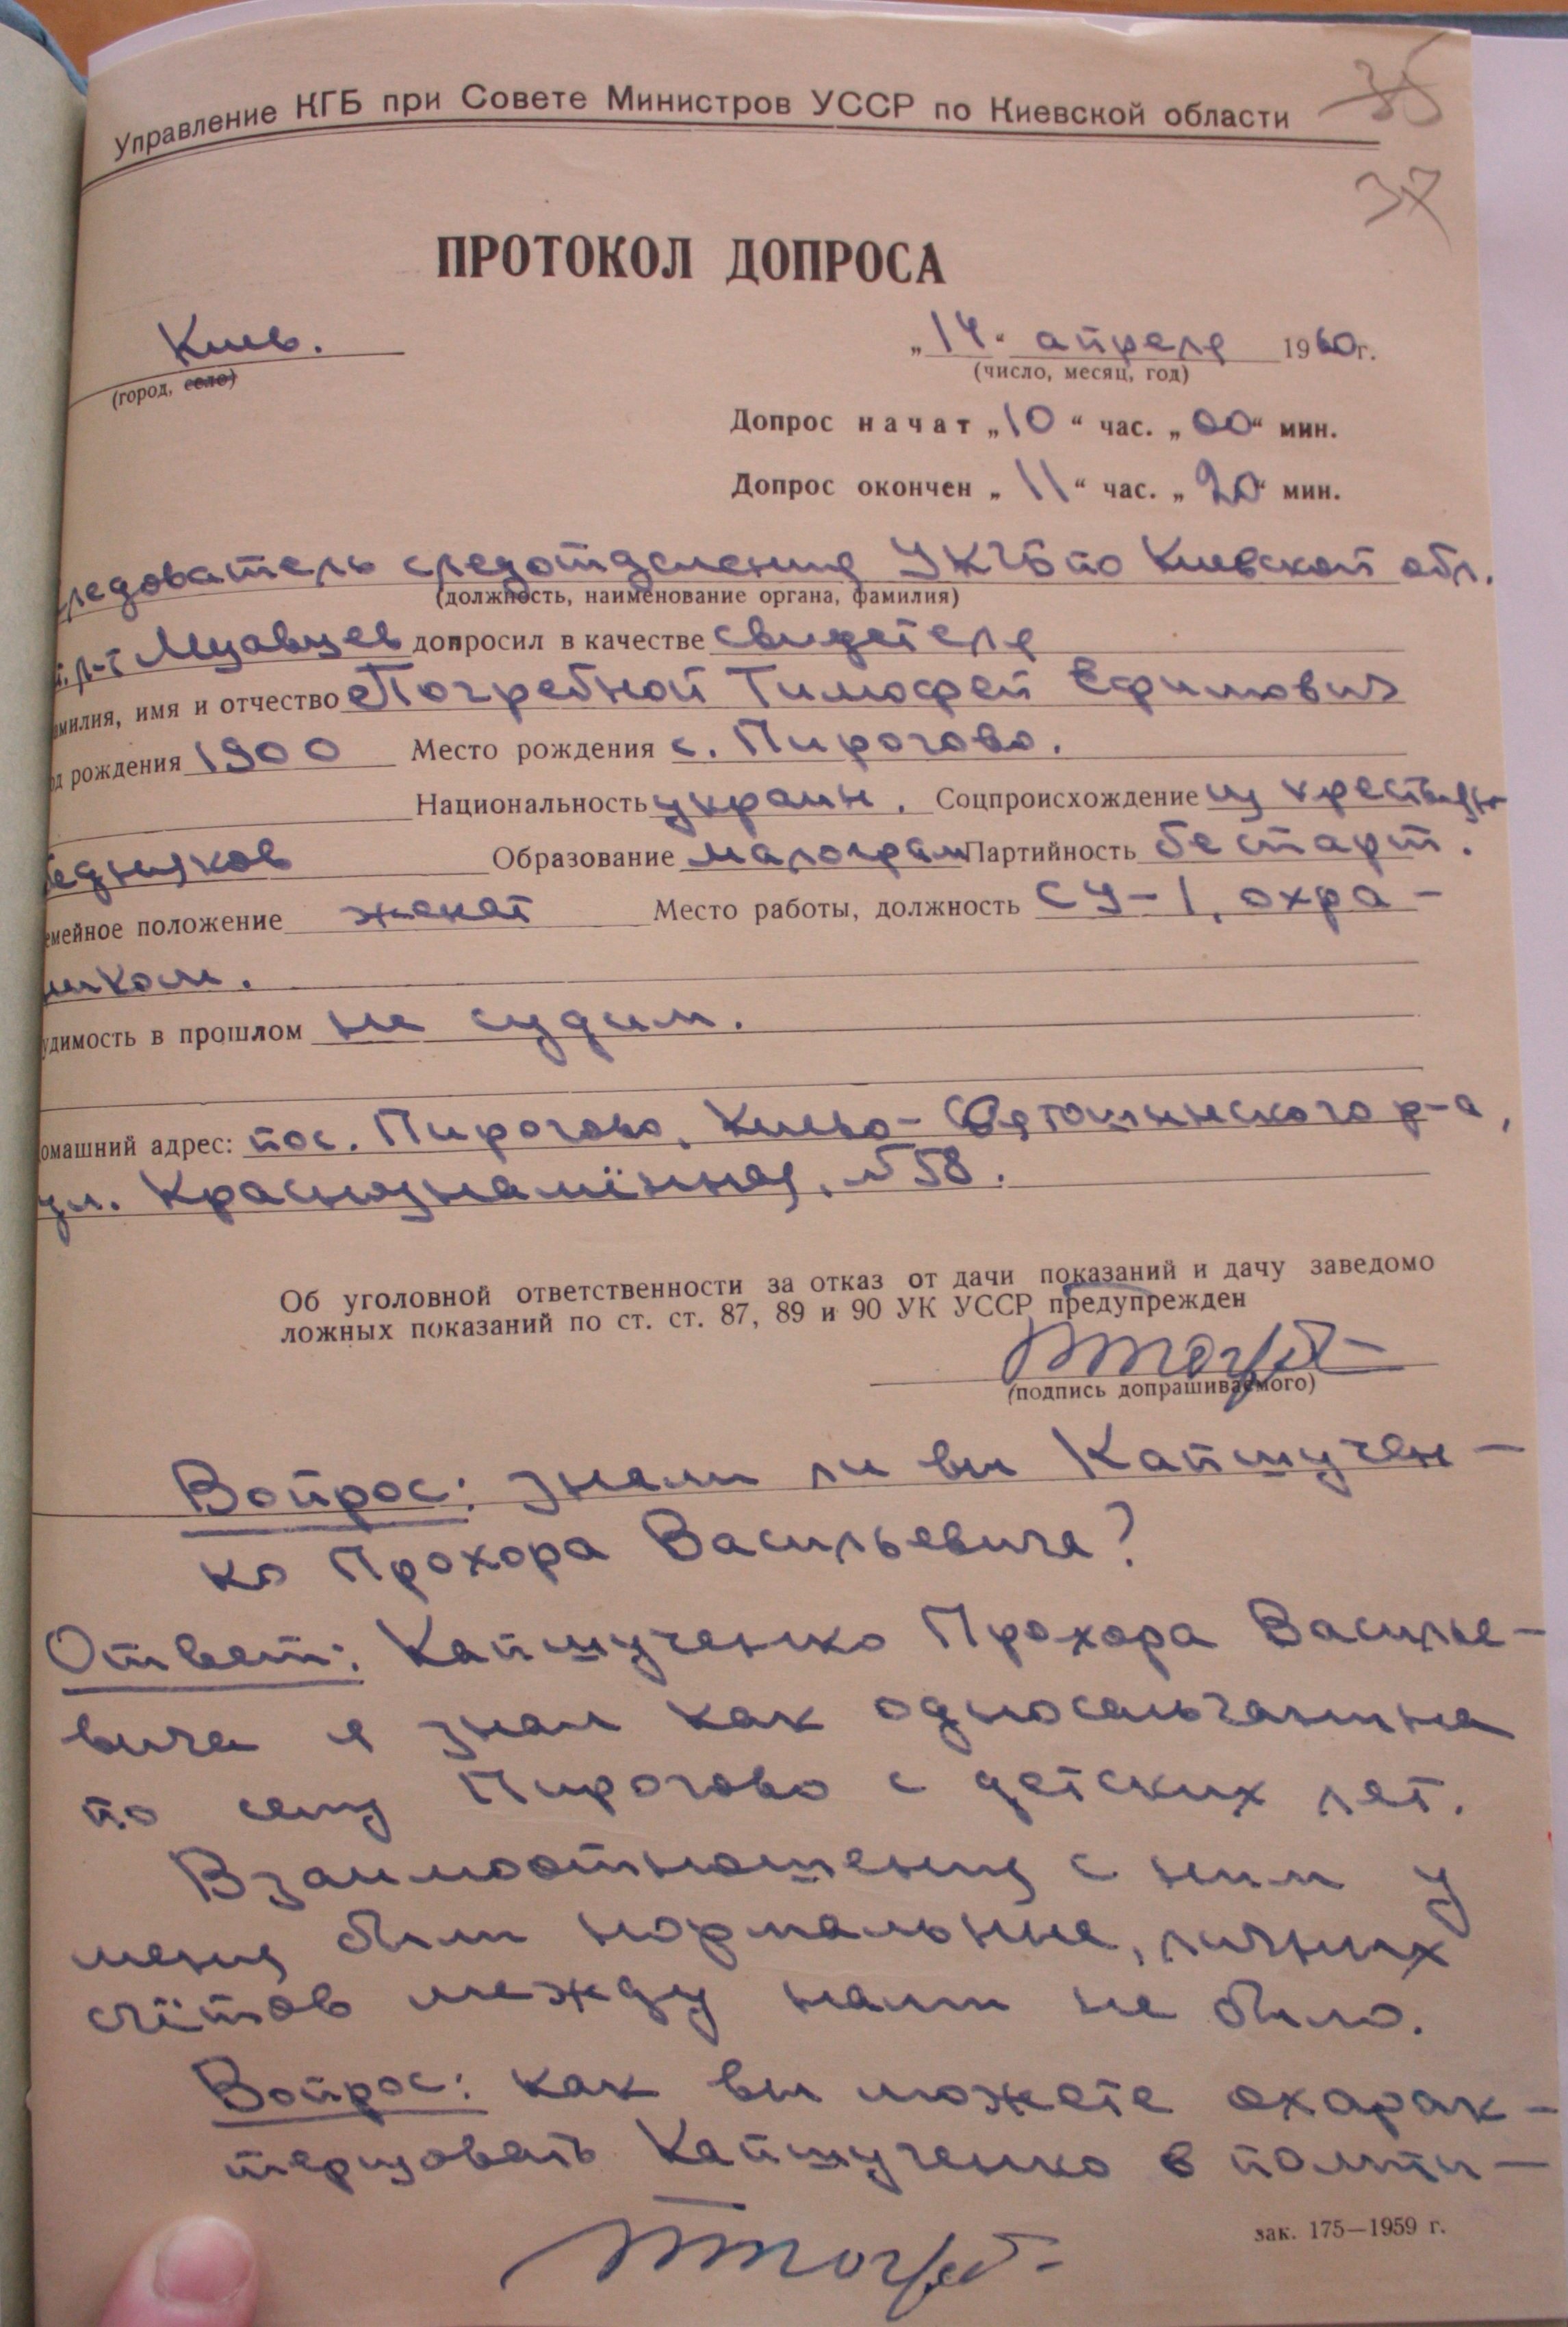 35
37
Управление КГБ при Совете Министров УССР по Киевской области
ПРОТОКОЛ ДОПРОСА
Киев.
(город, село)
„14“ апреля 1960 г.
(число, месяц, год)
Допрос начат „10“ час. „00“ мин.
Допрос окончен „11“ час. „20“ мин.
следователь следотделения УКГБ по Киевской обл.
(должность, наименование органа, фамилия)
допросил в качестве свидетеля
амилия, имя и отчество Погребной Тимофей Ефимович
од рождения 1900 Место рождения с. Пирогово.
Национальность украин. Соцпроисхождение из крестьян
бедняков Образование малограм Партийность беспарт.
емейное положение женат Место работы, должность СУ-1, охра-
ником.
удимость в прошлом не судим.
омашний адрес: пос. Пирогово, Киево-Святошинского р-а,
ул. Краснознамённая, №58.
Об уголовной ответственности за отказ от дачи показаний и дачу заведомо
ложных показаний по ст. ст. 87, 89 и 90 УК УССР предупрежден
(подпись допрашиваемого)
Вопрос: знали ли вы Капшучен-
ко Прохора Васильевича?
Ответ: Капшученко Прохора Василье-
вича я знал как односельчанина
по селу Пирогово с детских лет.
Взаимоотношения с ним у
меня были нормальные, личных
счётов между нами не было.
Вопрос: как вы можете охарак-
теризовать Капшученко в полити-
зак. 175—1959 г.